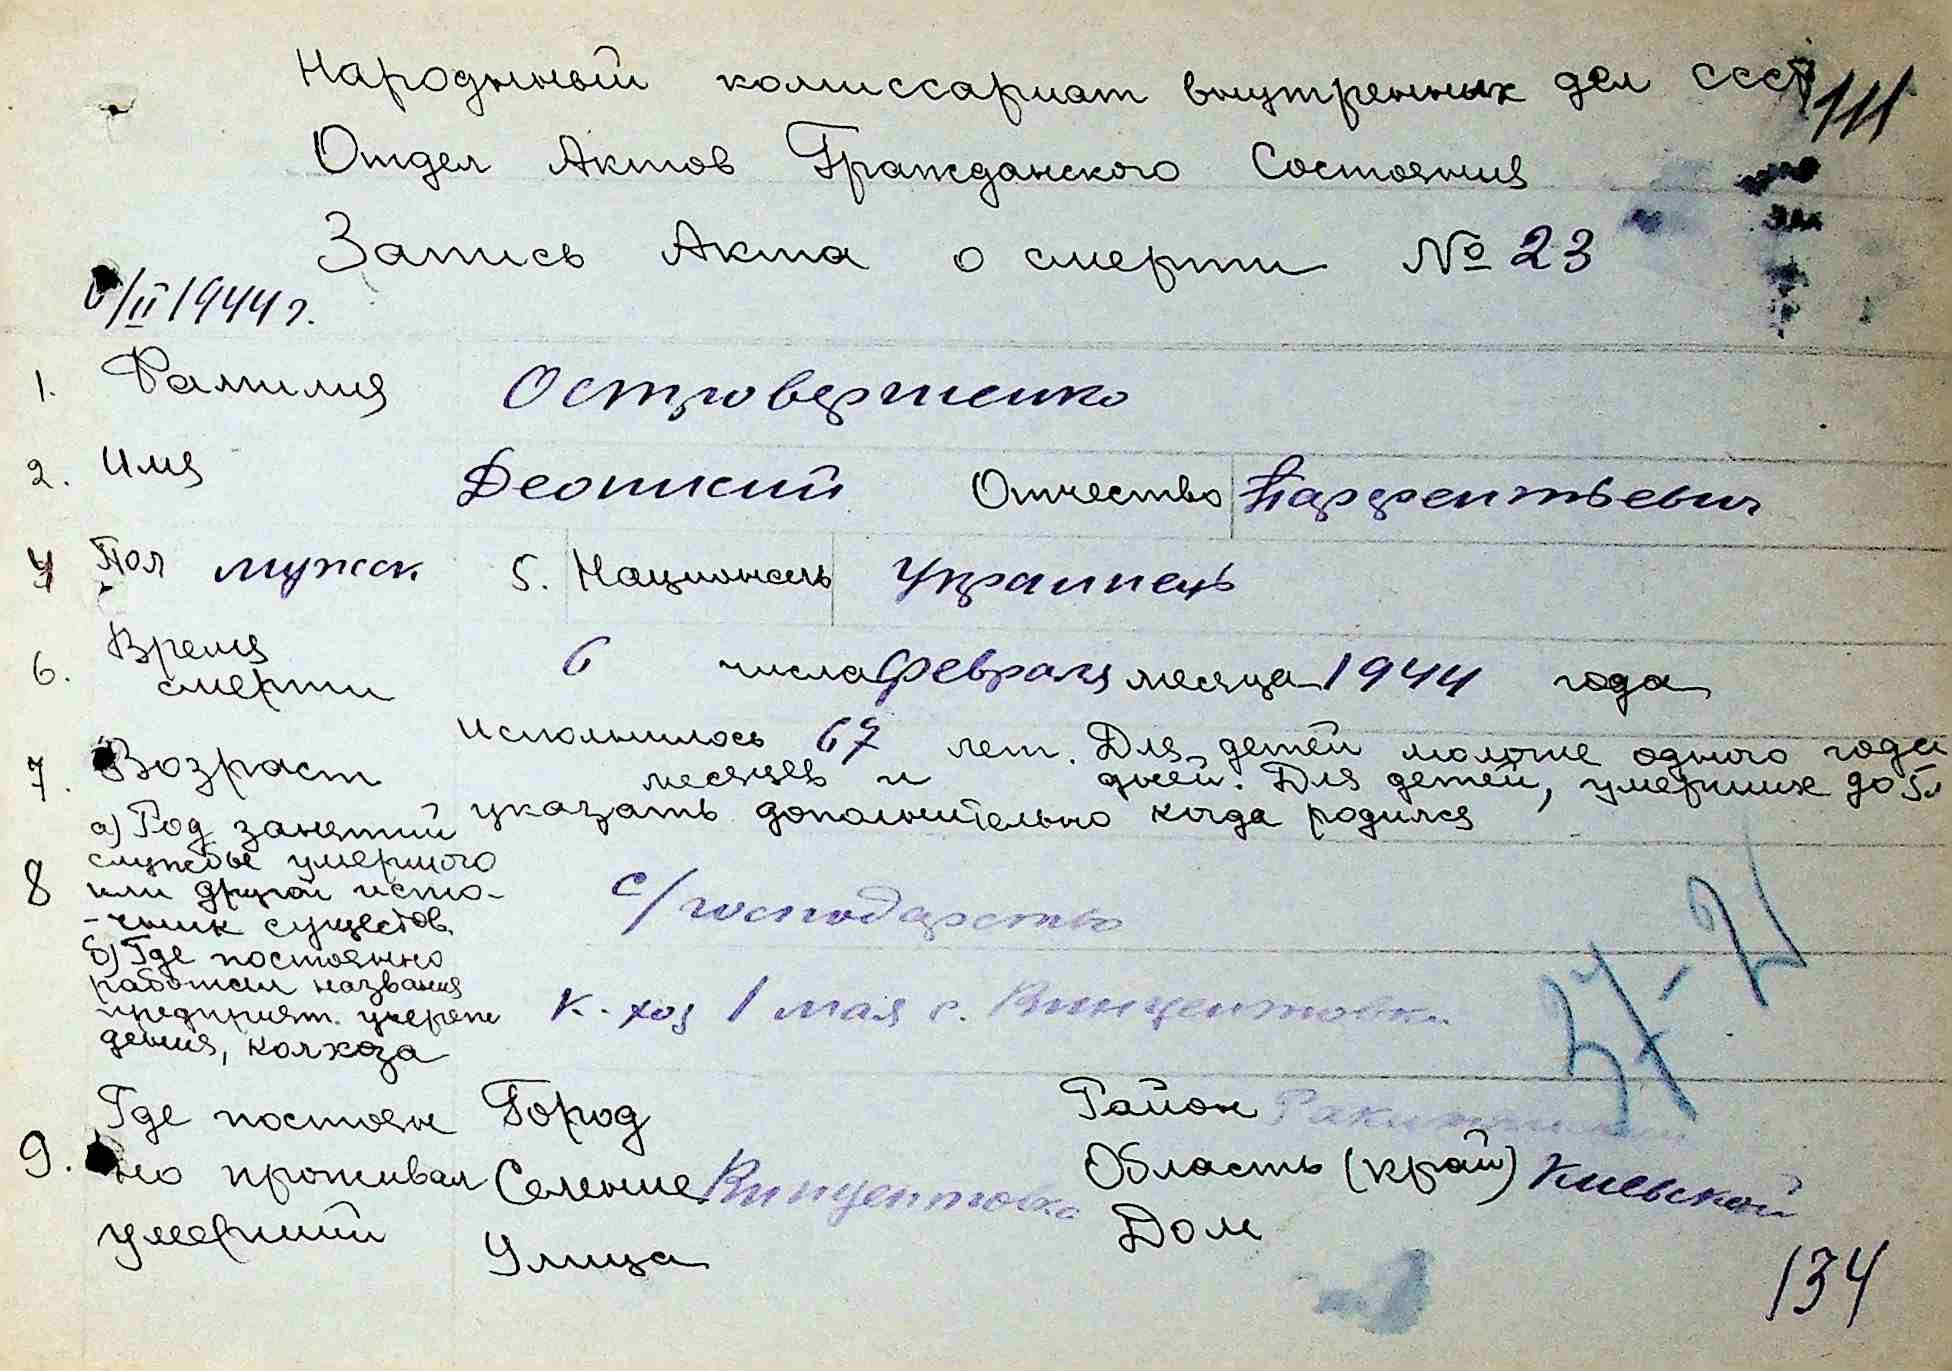 Народный комиссариат внутренных дел СССР 111
Отдел Актов Гражданского Состояния
Запись Акта о смерти № 23
6/II 1944 г.
1. Фамилия Островершенко
2. Имя Отчество Парфентьевич
4 Пол мужск 5. Национальь Украинець
6. Время смерти 6 числа февраля месяца 1944 года
7. Возраст Исполнилось 67 лет. Для детей моложе одного года
месяцев и дней. Для детей, умерших до 5л
указать дополнительно когда родился
8 а) Род занятий
службы умершого
или другой исто-
-чник существ.
с/господарство
б) Где постоянно
работал названия
предприят. учереж
дения, колхоза
к-хоз 1 мая с. Винцентовки
37-21
9. Где постоян
но проживал
умерший
Город Район Ракитянский
Селение Винцентовка Область (край) Киевской
Улица Дом
134